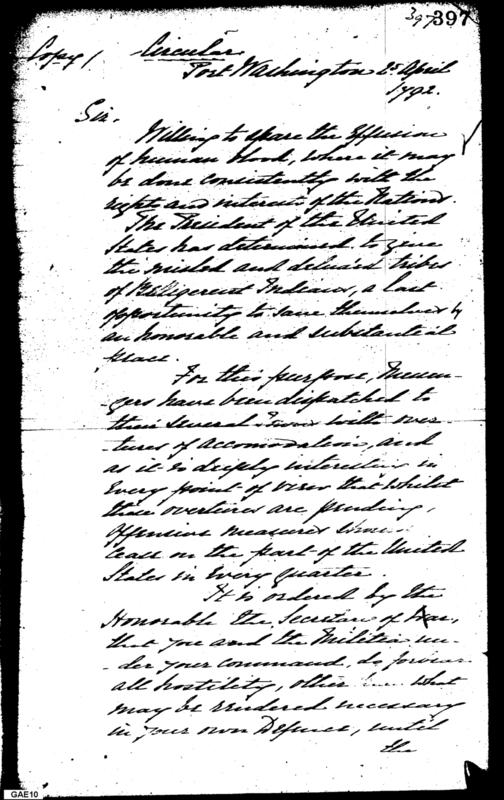 397 397
Copy / Circular
Fort Washington 25 April
1792.
Sir.
Willing to spare the Effusion
of human blood, where it may
be done consistently with the
rights and interests of the Nations.
The President of the United
States has determined to give
the misled and deluded tribes
of Belligerent Indians, a last
opportunity to save themselves by
an honorable and substantial
peace.
For this purpose, Messen-
gers have been dispatched to
their several Towns with over-
tures of accomodation, and
as it is deeply interesting in
Every point of view that whilst
these overtures are pending,
offensive measures
cease on the part of the United
States in Every quarter
It is ordered by the
Honorable the Secretary of War,
that you and the Militia un-
-der your command, do
all hostility, other what
may be rendered necessary
in your own Defence, until
the
GAE10